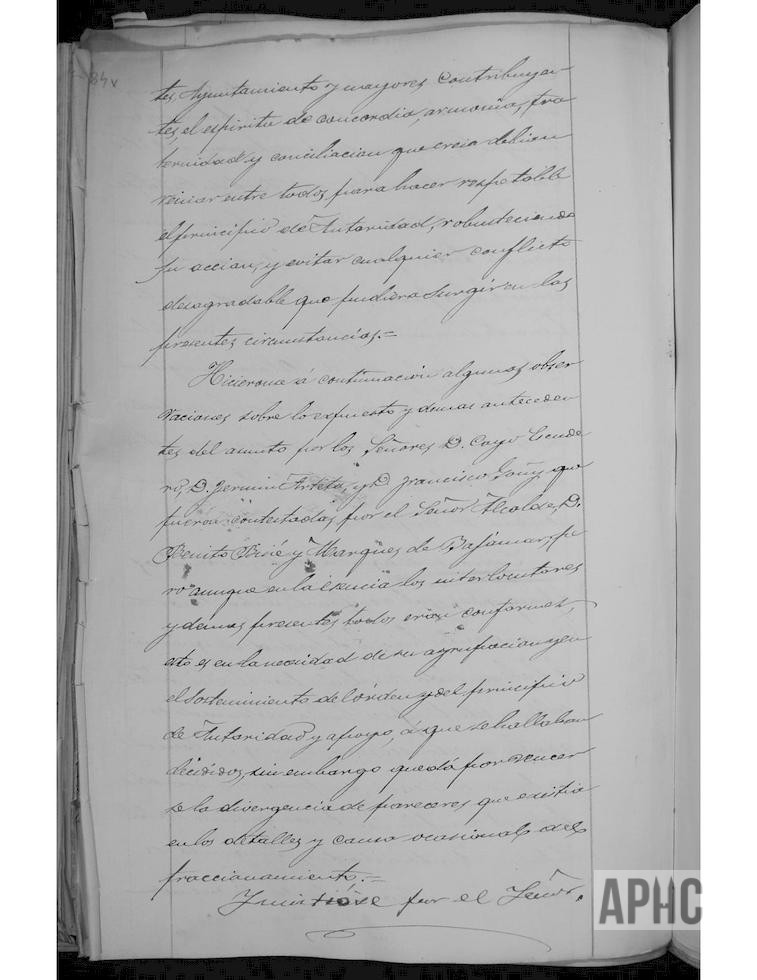 84v
tes, Ayuntamiento y mayores Contribuyen-
tes, el espiritu de concordia, armonia, fra
ternidad y conciliacion que creia debian
reinar entre todos para hacer respetable
el principio de Autoridad, robusteciendo
su accion, y evitar cualquier conflicto
desagradable que pudiera surgir en las
presentes circunstancias.=
Hicieron á continuación algunas obser
vaciones sobre lo expuesto y demas anteceden
tes del asunto por los Señores D. Cayo
D. Fermin Arteta, y D. Francisco Goñy que
fueron contestadas por el Señor Alcalde, D.
Benito y Marques de Bajamar, pe
ro aunque en la esencia los interlocutores
y demas presentes todos eran conformes,
esto es en la necesidad de su agrupacion y en
el sostenimiento del órden y del principio
de Autoridad y apoyo, á que se hallaban
decididos, sin embargo quedó por vencer
se la divergencia de pareceres que existia
en los detalles y causa ocasional del
fraccionamiento.=
por el Señor
APHC